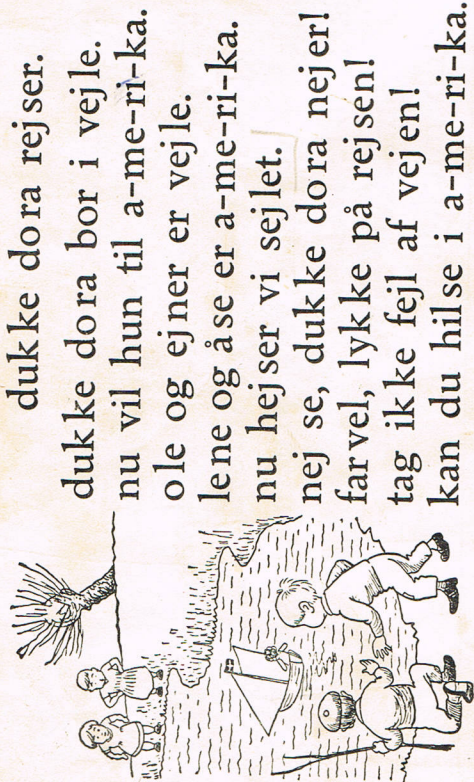 dukke dora rejser.
dukke dora bor i vejle.
nu vil hun til a-me-ri-ka.
ole og ejner er vejle.
lene og åse er a-me-ri-ka.
nu hejser vi sejlet.
nej se, dukke dora nejer!
farvel, lykke på rejsen!
tag ikke fejl af vejen!
kan du hilse i a-me-ri-ka.